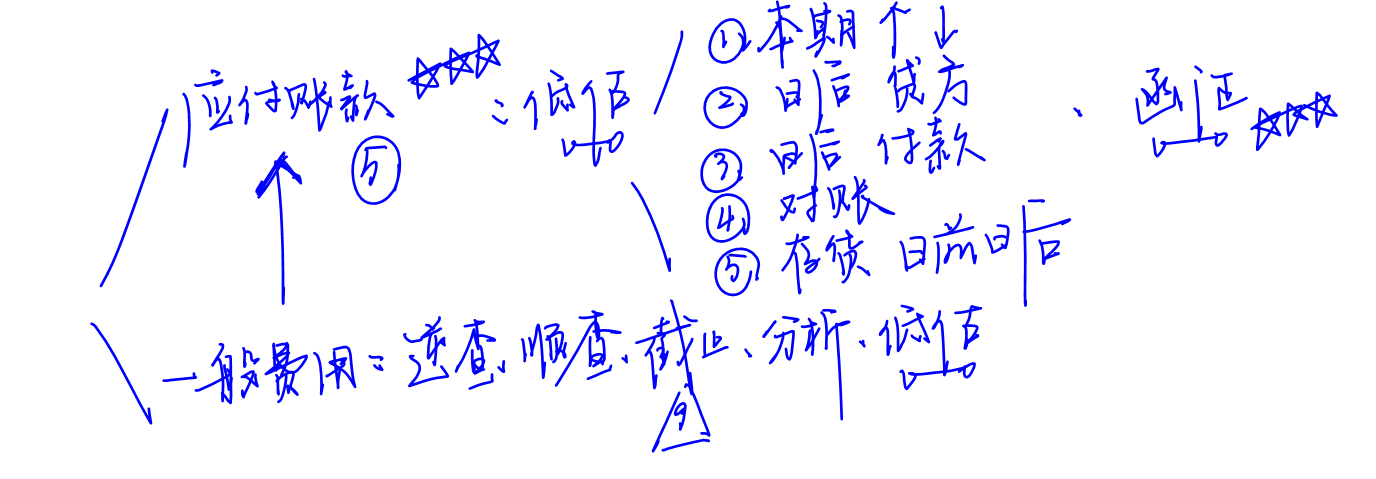 应付账款 ☆☆☆ : 低估
⑤
① 本期 ↑ ↓
② 日后 贷方
③ 日后 付款
④ 对账
⑤ 存货 日前日后
、函证 ☆☆☆
一般费用: 逆查、顺查、截止、分析、低估
9